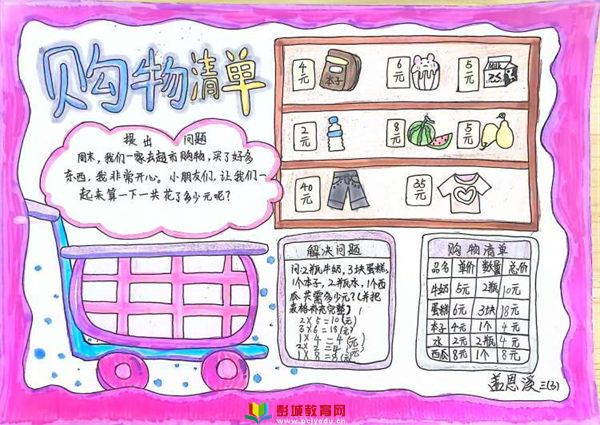 购物清单
提出 问题
周末,我们一家去超市购物,买了好多
东西,我非常开心。小朋友们,让我们一
起来算一下一共花了多少元呢?
4元
本子
6元
5元
2元
8元
5元
40元
35元
解决问题
问:2瓶牛奶,3块蛋糕,
1个本子,2瓶水,1个西
瓜共需多少元?(并把
表格补充完整)
2×5=10(元)
3×6=18(元)
1×4=4(元)
2×2=4(元)
1×8=8(元)
购物清单
品名 单价 数量 总价
牛奶 5元 2瓶 10元
蛋糕 6元 3块 18元
本子 4元 1个 4元
水 2元 2瓶 4元
西瓜 8元 1个 8元
三(3)
彭城教育网
www.pcjyedu.cn